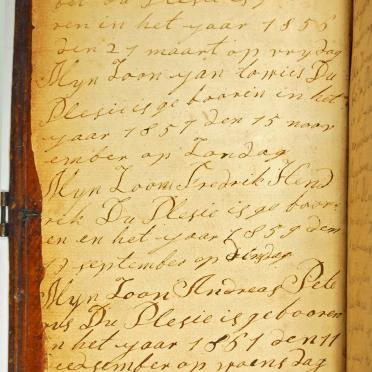 ren in het yaar 1856
den 27 maart op vrydag
Myn Zoon yan Lowies Du
Plesie is ge booren in het
yaar 1857 den 15 noov
ember op Zondag
Myn Zoon Fredrik Hend
rik Du Plesie is ge boor
en en het yaar 1859 den
september op Dinsdag
Myn Zoon Andreas Pet
rus Du Plesie is ge booren
in het yaar 1861 den 11
deedsember op woensdag